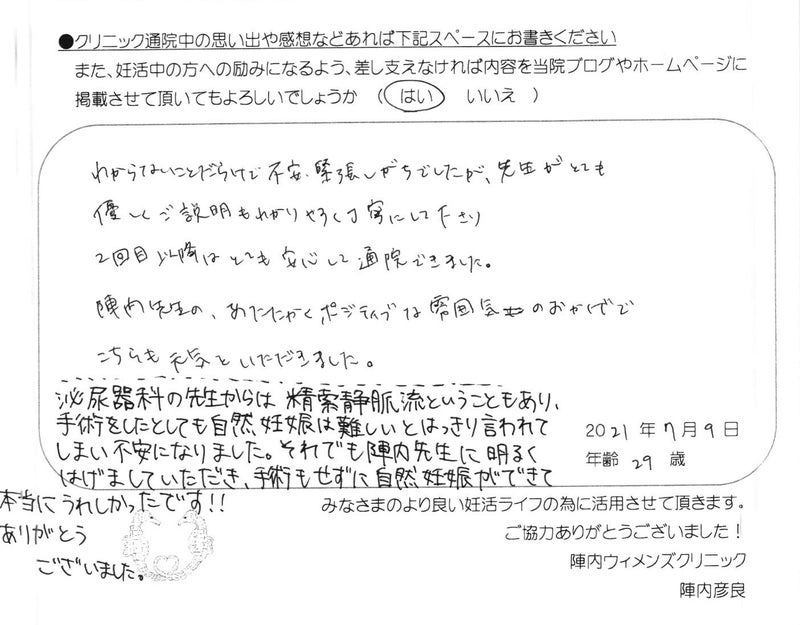 ●クリニック通院中の思い出や感想などあれば下記スペースにお書きください
また、妊活中の方への励みになるよう、差し支えなければ内容を当院ブログやホームページに
掲載させて頂いてもよろしいでしょうか ( はい いいえ )
わからないことだらけで不安・緊張しがちでしたが、先生がとても
優しくご説明もわかりやすく丁寧にして下さり
2回目以降はとても安心して通院できました。
陣内先生の、あたたかくポジティブな雰囲気のおかげで
こちらも元気をいただきました。
泌尿器科の先生からは精索静脈流ということもあり、
手術をしたとしても自然妊娠は難しいとはっきり言われて
しまい不安になりました。それでも陣内先生に明るく
はげましていただき、手術もせずに自然妊娠ができて
本当にうれしかったです!!
ありがとう
ございました。
2021年7月9日
年齢 29 歳
みなさまのより良い妊活ライフの為に活用させて頂きます。
ご協力ありがとうございました!
陣内ウィメンズクリニック
陣内彦良